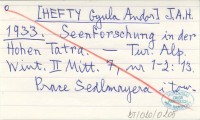 [HEFTY Gyula Andor] J.A.H.
1933. Seenforschung in der
Hohen Tatra. — Tur. Alp.
Wint. II Mitt. 7, nr 1-2: 13.
Prace Sedlmayera i tow.